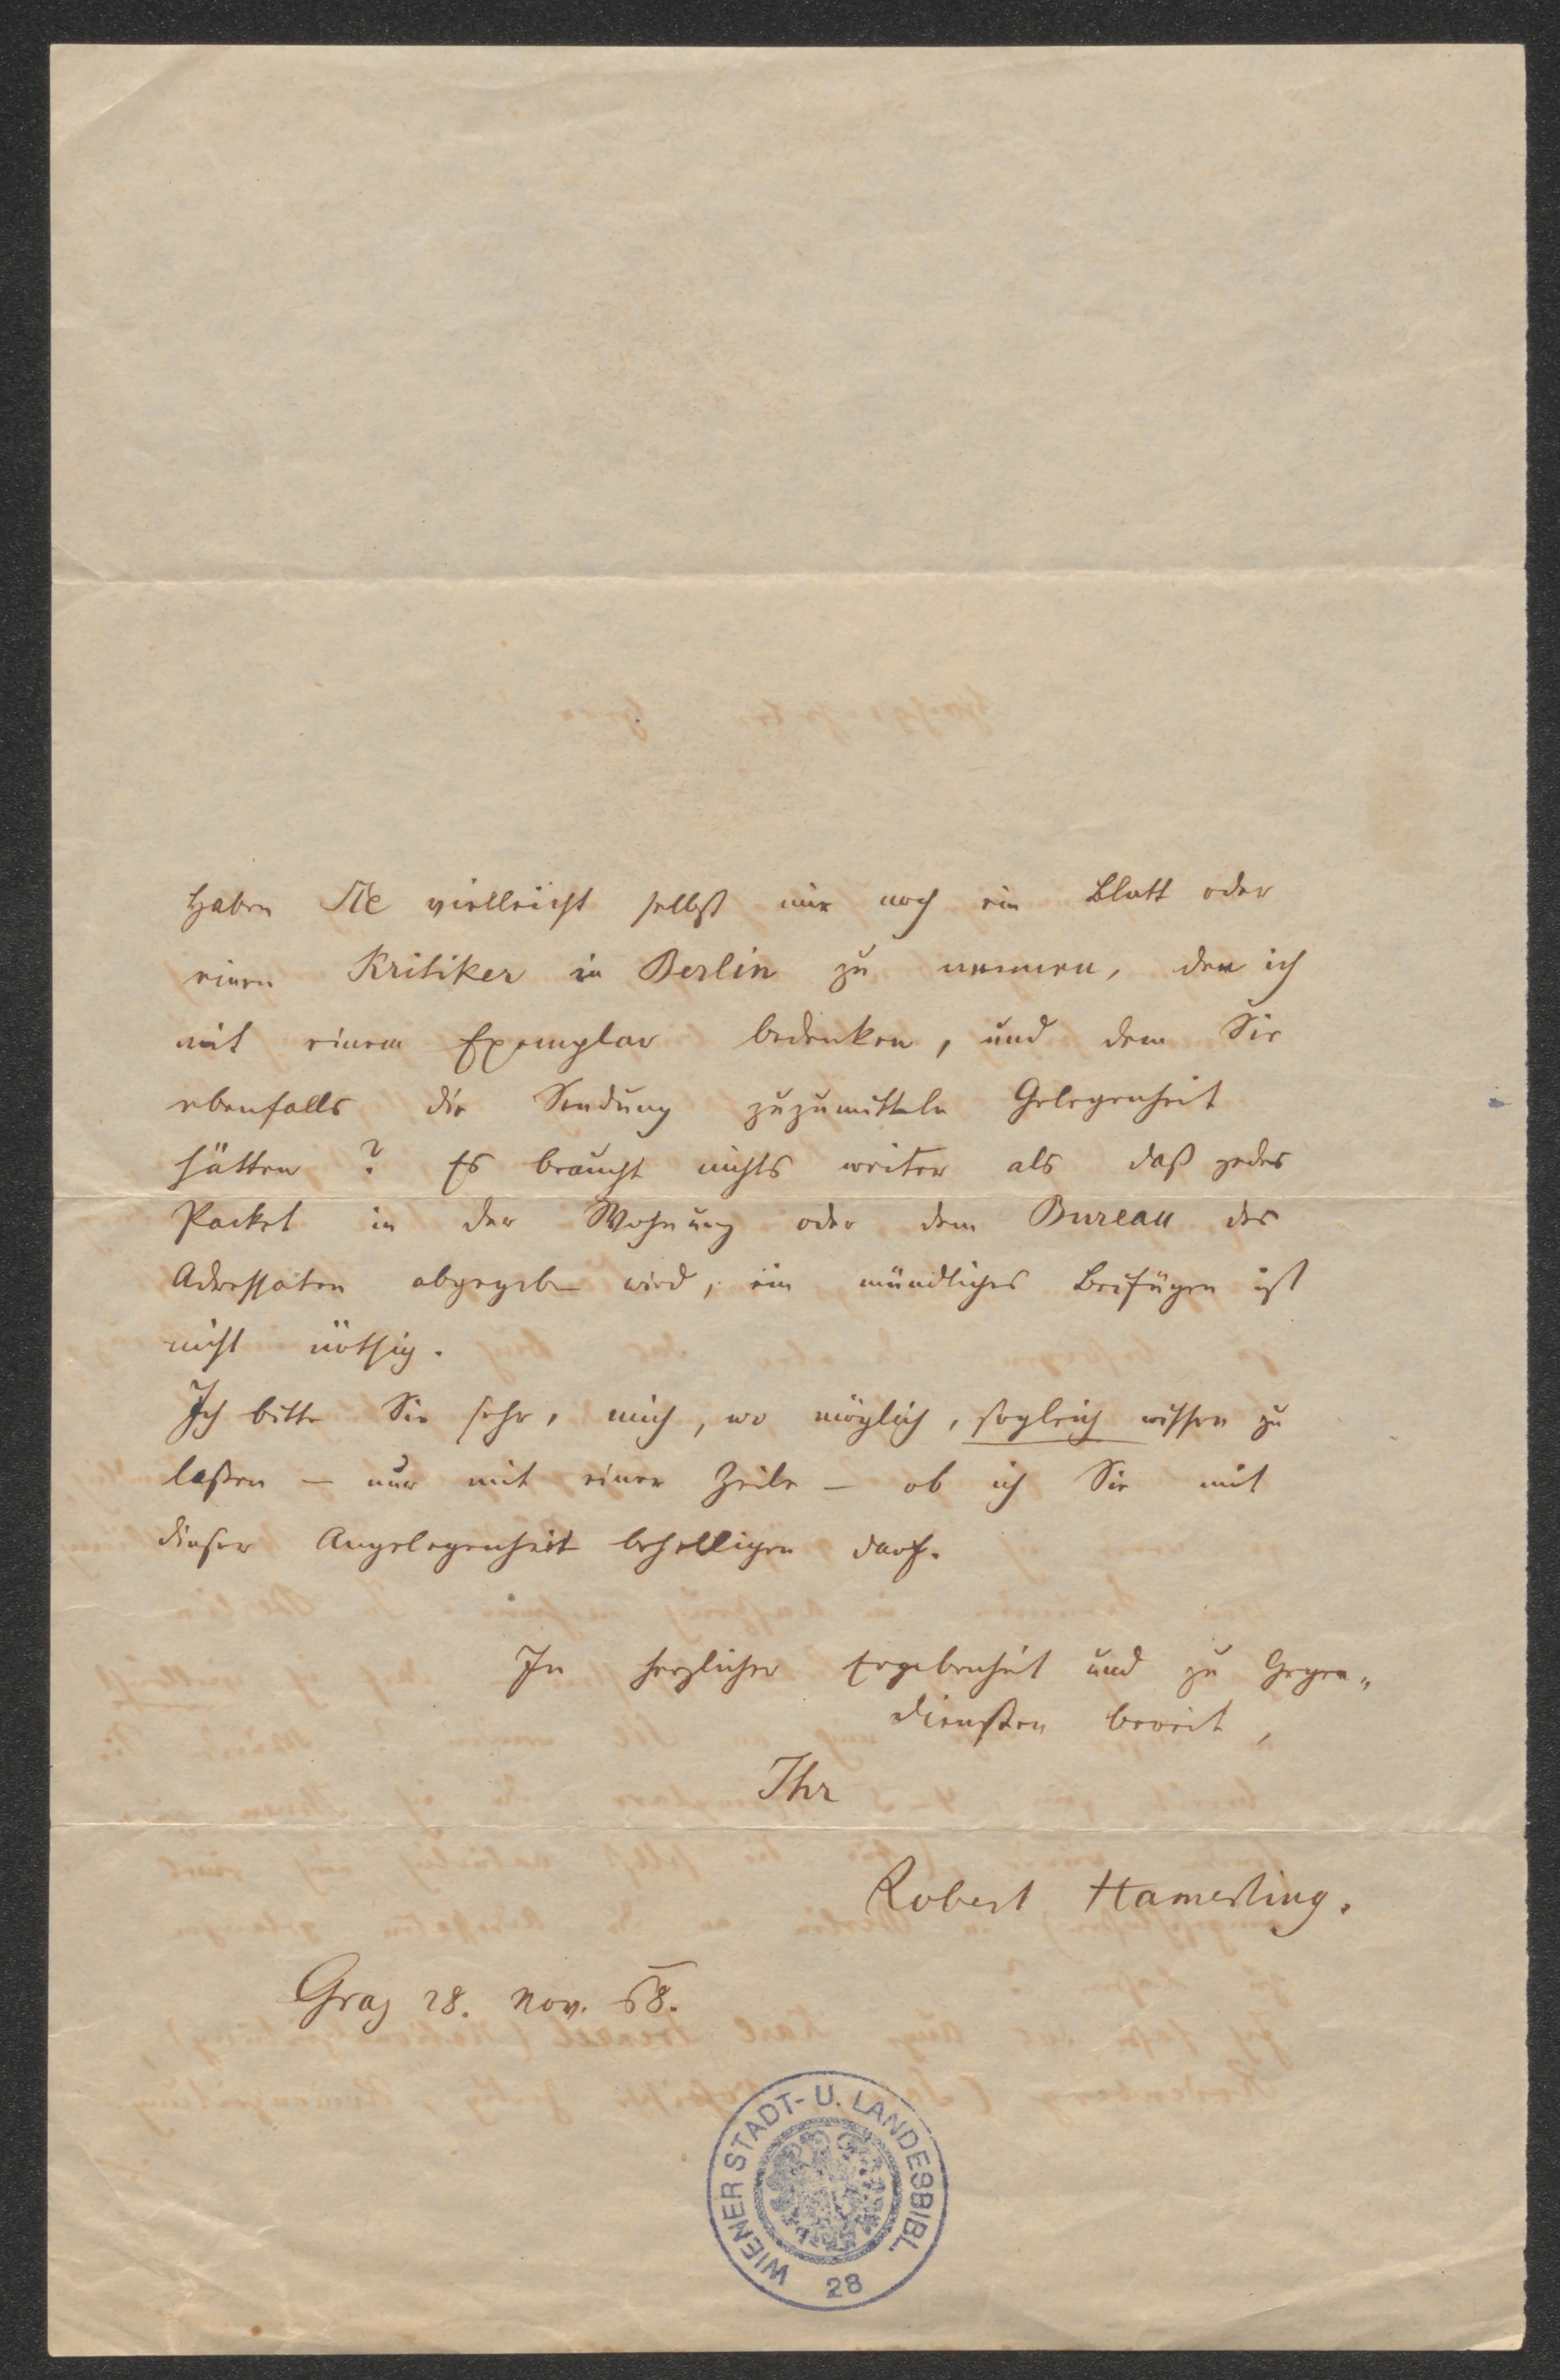 Haben Sie vielleicht selbst mir noch ein Blatt oder
einen Kritiker in Berlin zu nennen, den ich
mit einem Exemplar bedenken, und dem Sie
ebenfalls die Sendung zuzumitteln Gelegenheit
hätten? Es braucht nichts weiter als daß jedes
Packet in der Wohnung oder dem Bureau des
Adressaten abgegeben wird, ein mündliches Beifügen ist
nicht nöthig.
Ich bitte Sie sehr, mich, wo möglich, sogleich wissen zu
laßen – nur mit einer Zeile – ob ich Sie mit
dieser Angelegenheit behelligen darf.
In herzlicher Ergebenheit und zu Gegen„
diensten bereit,
Ihr
Robert Hamerling.
Graz 28. Nov. 68.
WIENER STADT- U. LANDESBIBL.
28